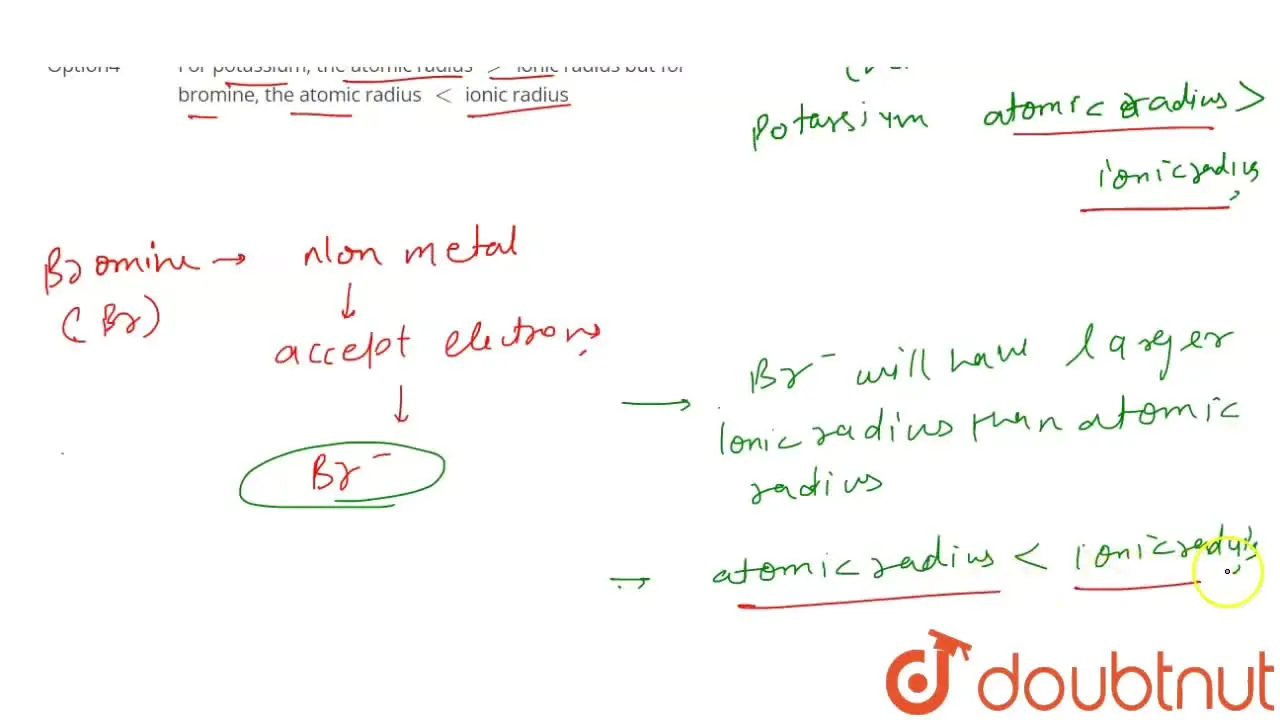 Option4 For potassium, the atomic radius > ionic radius but for
bromine, the atomic radius < ionic radius
Potassium atomic radius >
ionic radius
Bromine → Non metal
(Br)
↓
accept electrons
↓
Br⁻
→ Br⁻ will have larger
ionic radius than atomic
radius
⇒ atomic radius < ionic radius
doubtnut